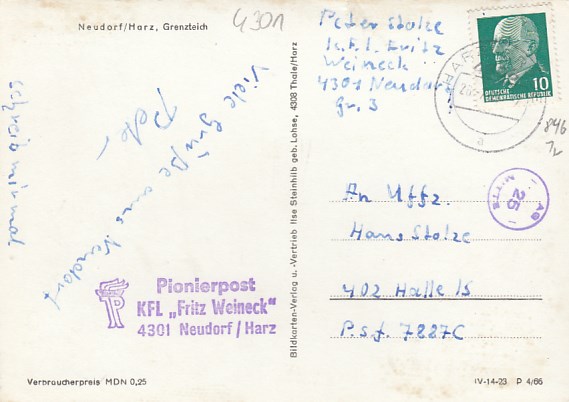 Neudorf/Harz, Grenzteich
4301
Peter Stolze
K.F.L. Fritz
Weineck
4301 Neudorf
Gr. 3
DEUTSCHE
DEMOKRATISCHE REPUBLIK
10
HARZ
a
846
AG
25
MITTE
Viele Grüße aus Neudorf
Peter
schreib mir mal
An Uffz.
Hans Stolze
402 Halle 15
P.s.f. 7887C
Pionierpost
KFL „Fritz Weineck"
4301 Neudorf/Harz
Bildkarten-Verlag u.-Vertrieb Ilse Steinhilb geb. Lohse, 4308 Thale/Harz
Verbraucherpreis MDN 0,25
IV-14-23 P 4/66